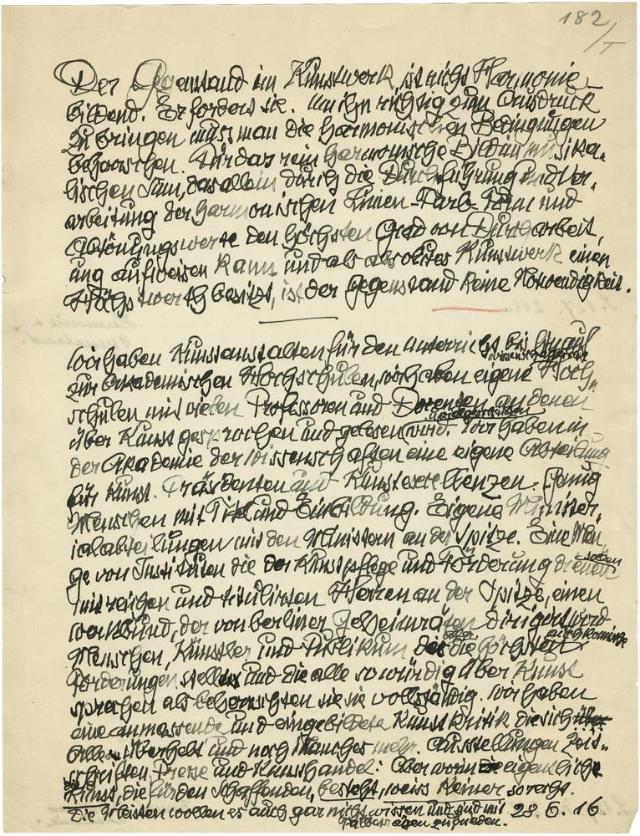 182/I
Der Gegenstand im Kunstwerk ist nicht Harmonie
bildend. Er fordert sie. um ihn richtig zum Ausdruck
zu bringen muss man die harmonischen Bedingungen
beherrschen. Für das rein harmonische Bild im musika-
lischen Sinn, das allein durch die Durchführung und Ver-
arbeitung der harmonischen Linien- Farb- Form und
Abtönungswerte den höchsten Grad von Durcharbeit-
ung aufweisen kann und als absolutes Kunstwerk einen
Höchstwert besitzt, ist der Gegenstand keine Notwendigkeit.
Wir haben Kunstanstalten für den Unterricht bis hinauf
zur Akademischen Hochschulen, wir haben eigene Hoch-
schulen mit vielen Professoren und Dozenten an denen
über Kunst gesprochen und gelesen wird. Wir haben in
der Akademie der Wissenschaften eine eigene Abteilung
für Kunst. Präsidenten und Kunstexcellenzen.
Menschen mit Titel und Einbildung. Eigene Minister-
ialabteilungen mit den Ministern an der Spitze. Eine Men-
ge von Instituten die der Kunstpflege und Förderung dienen
mit reichen und titulirten Herren an der Spitze, einen
Werkbund, der von berliner Geheimräten dirigert wird
Menschen, Künstler und Publikum die die höchsten
Forderungen stellen und die alle so würdig über Kunst
sprechen als beherrschten sie sie vollständig. Wir haben
eine anmassende und eingebildete Kunstkritik die sich über
Alles überhebt und noch Manches mehr. Ausstellungen Zeit-
schriften Presse und Kunsthandel: Aber worin die eigentliche
Kunst, die für den Schaffenden, besteht, weiss keiner so recht.
Die Meisten wollen es auch gar nicht wissen und sind mit
28. 6. 16
zufrieden.